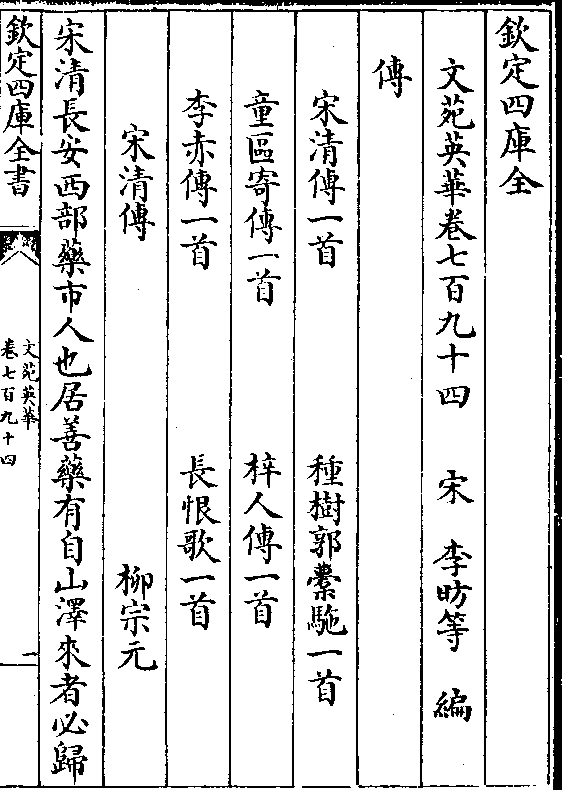 欽定四庫全
文苑英華卷七百九十四 宋 李昉等 編
傳
宋清傳一首 種樹郭橐駞一首
童區寄傳一首 梓人傳一首
李赤傳一首 長恨歌一首
宋清傳 柳宗元
宋清長安西部藥市人也居善藥有自山澤來者必歸
欽定四庫全書
文苑英華
卷七百九十四
一